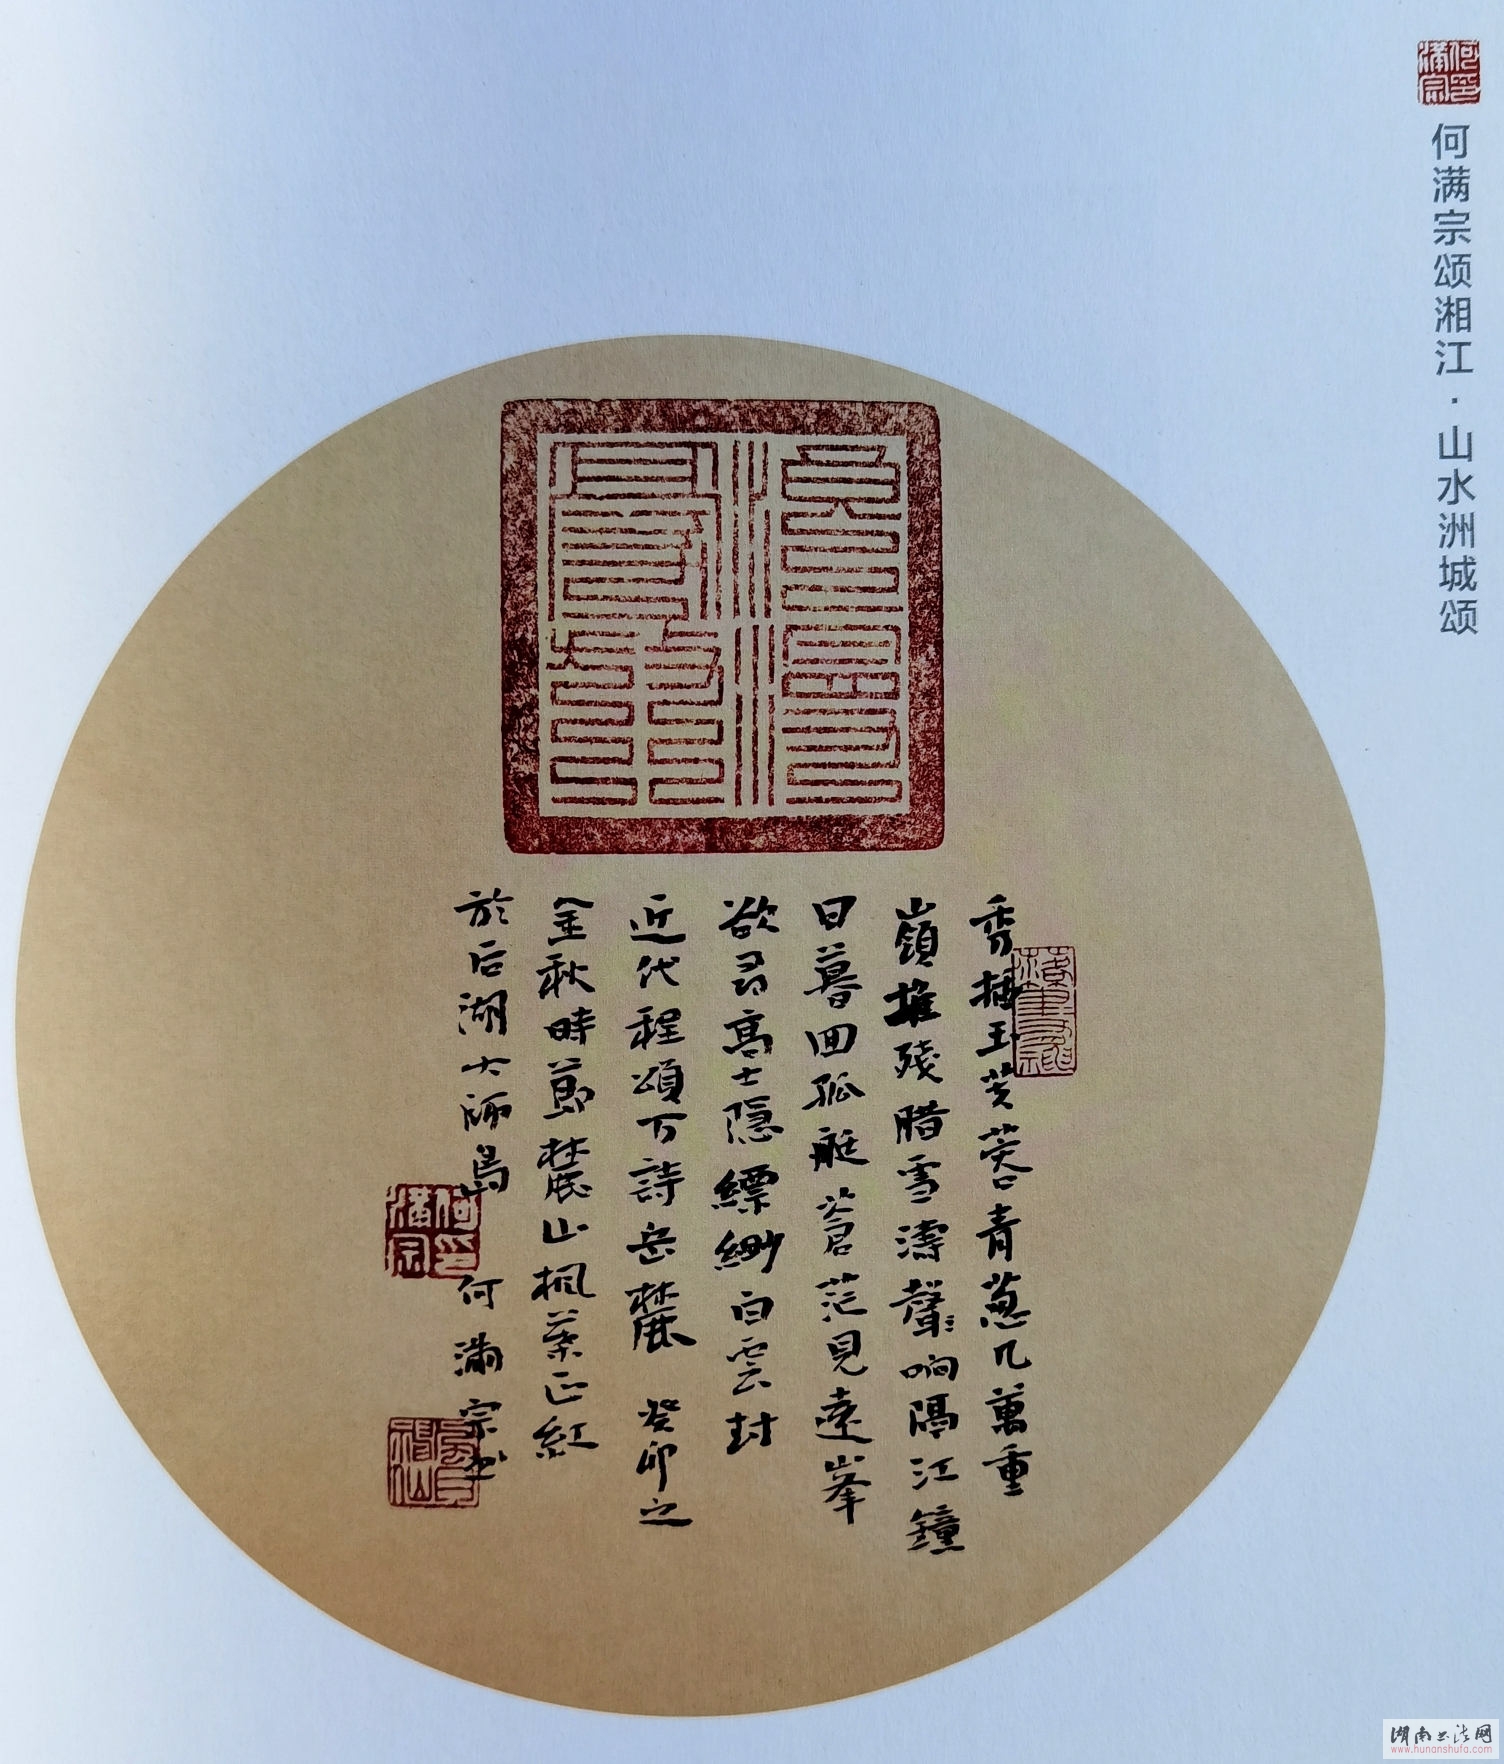 何满宗颂湘江·山水洲城颂
何满宗印
秀插玉芙蓉青葱几萬重
嶺堆殘腊雪濤聲响隔江鐘
日暮回孤艇蒼茫見遠峯
欲尋高士隱縹緲白雲封
近代程頌万詩岳麓 癸卯之
金秋時節麓山楓葉正紅
於后湖大師島 何滿宗書
何满宗印
湖南书法网
www.hunanshufa.com